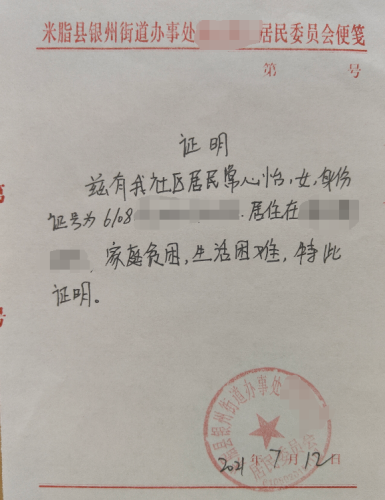 米脂县银州街道办事处 居民委员会便笺
第 号
证明
兹有我社区居民常心怡,女,身份
证号为6108 .居住在
,家庭贫困,生活困难,特此
证明。
米脂县银州街道办事处
居民委员会
2021年7月12日
第
号